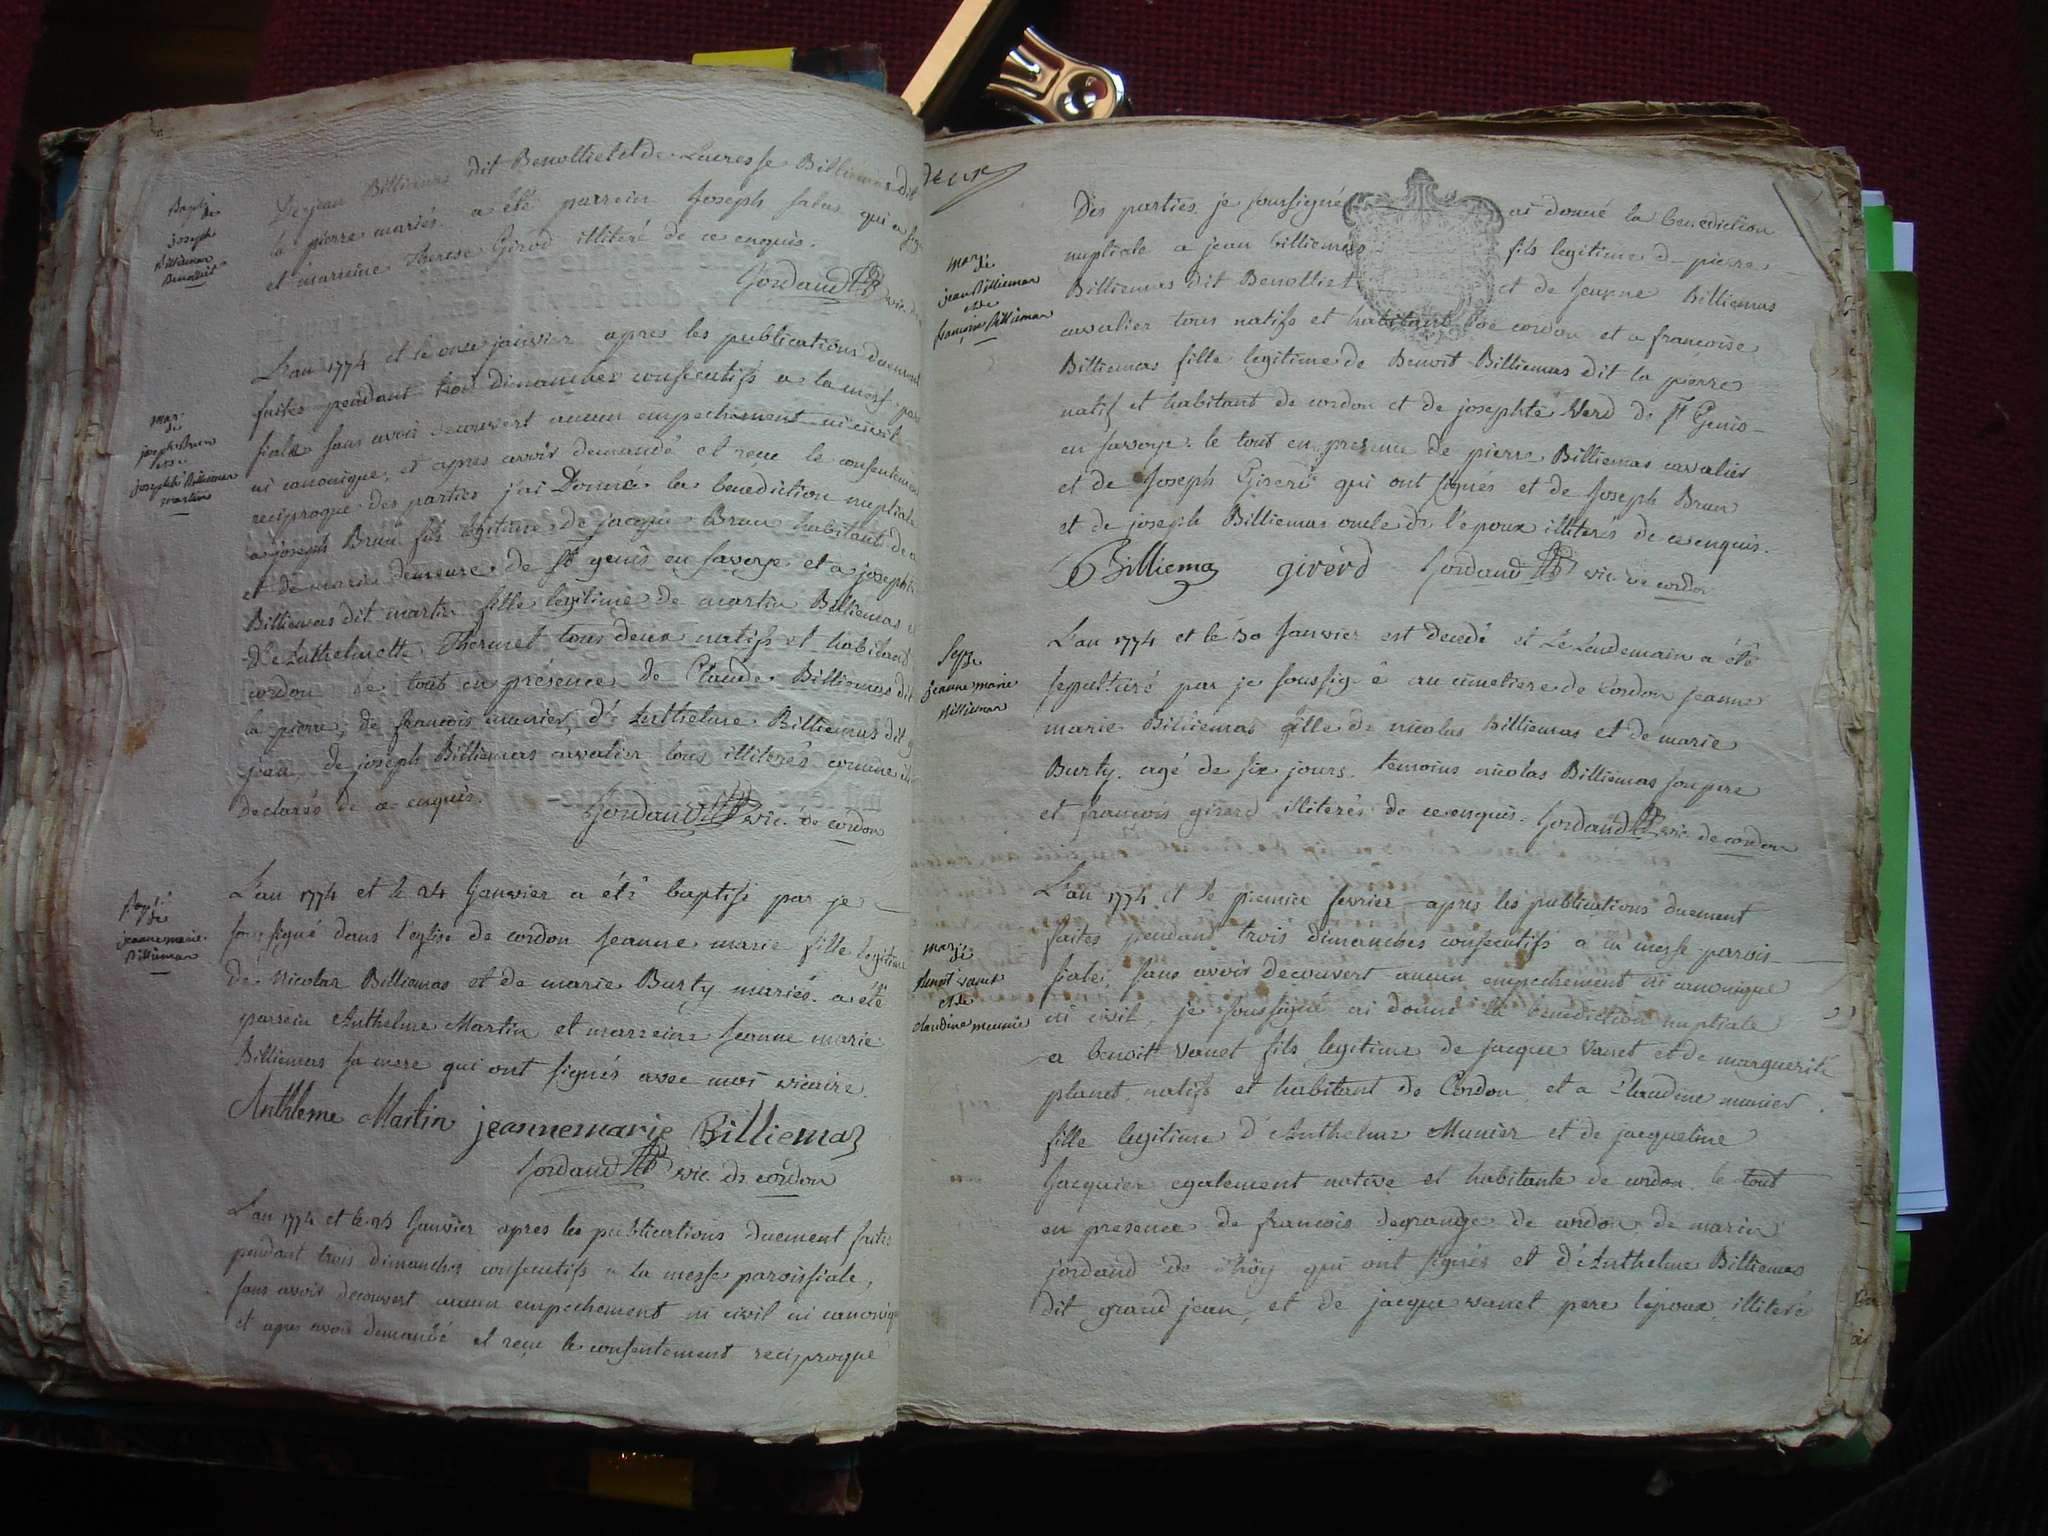 Bapt.
de
joseph
Billiemas
Benolliet
De jean Billiemas dit Benolliet et de Lucresse Billiemas dit
la pierre mariés. a été parrein Joseph qui a
et marreine Therese Girod illiteré de ce enquis.
Jordand vic. de
mar.
di
joseph Brun
et de
josephte Billiemas
martin
L'an 1774 et le onze janvier apres les publications duement
faites pendant trois dimanches consecutifs a la messe parois
siale sans avoir decouvert aucun empechement ni civil
ni canonique, et apres avoir demandé et reçu le consentement
reciproque des parties j'ai Donné la benediction nuptiale
a joseph Brun fils legitime de jacque Brun habitant de
et de marie demeure de St genis en savoye et a josephte
Billiemas dit martin fille legitime de martin Billiemas et
D'Anthelmette Thermet tous deux natifs et habitant
cordon le tout en présence de Claude Billiemas dit
la pierre, de francois munier, d'Anthelme Billiemas dit g
jean, de joseph Billiemas cavalier tous illiterés comme ils
declarés de ce enquis.
Jordand vic. de cordon
Bapt.
de
jeanne marie
Billiemas
L'an 1774 et le 24 Janvier a été baptisé par je
soussigné dans l'eglise de cordon Jeanne marie fille legitime
de Nicolas Billiemas et de marie Burty mariés. a été
parrein Anthelme Martin et marreine Jeanne marie
Billiemas sa mere qui ont signés avec moi vicaire.
Anthleme Martin jeannemarie Billiemaz
Jordand vic. de cordon
L'an 1774 et le 25 Janvier apres les publications duement faites
pendant trois dimanches consecutifs a la messe paroissiale,
sans avoir decouvert aucun empechement ni civil ni canoniq
et apres avoir demandé et reçu le consentement reciproque
deux
mar.
di
jean Billiemas
et de
françoise Billiemas
Des parties je soussigné ai donné la benediction
nuptiale a jean billiemas fils legitime de pierre
Billiemas dit Benolliet et de Jeanne Billiemas
cavalier tous natifs et habitant de cordon et a françoise
Billiemas fille legitime de Benoit Billiemas dit la pierre
natif et habitant de cordon et de josephte Verd de St Genis
en savoye. le tout en presence de pierre Billiemas cavalier
et de Joseph Girerd qui ont signés et de Joseph Brun
et de joseph Billiemas oncle de l'epoux illiterés de ce enquis.
Billiemaz girerd Jordand vic. de cordon
Sep.
de
jeanne marie
Billiemas
L'an 1774 et le 30 Janvier est decedé et Le Lendemain a été
sepulturé par je soussigné au cimetiere de Cordon jeanne
marie Billiemas fille de nicolas billiemas et de marie
Burty. agé de six jours. temoins nicolas Billiemas son pere
et françois girerd illiterés de ce enquis. Jordand vic. de cordon
mar.
di
Benoit vanet
et de
claudine meunie
L'an 1774 et le premier fevrier apres les publications duement
faites pendant trois dimanches consecutifs a la messe parois
siale, sans avoir decouvert aucun empechement ni canonique
ni civil, je soussigné ai donné la benediction nuptiale
a benoit vanet fils legitime de jacque vanet et de marguerite
planet natifs et habitant de Cordon et a Claudine munier
fille legitime d'Anthelme Munier et de jacqueline
Jacquier egalement native et habitante de cordon. le tout
en presence de francois degrange de cordon de marin
jordand de qui ont signés et d'Anthelme Billiemas
dit grand jean, et de jacque vanet pere lepoux, illiteré